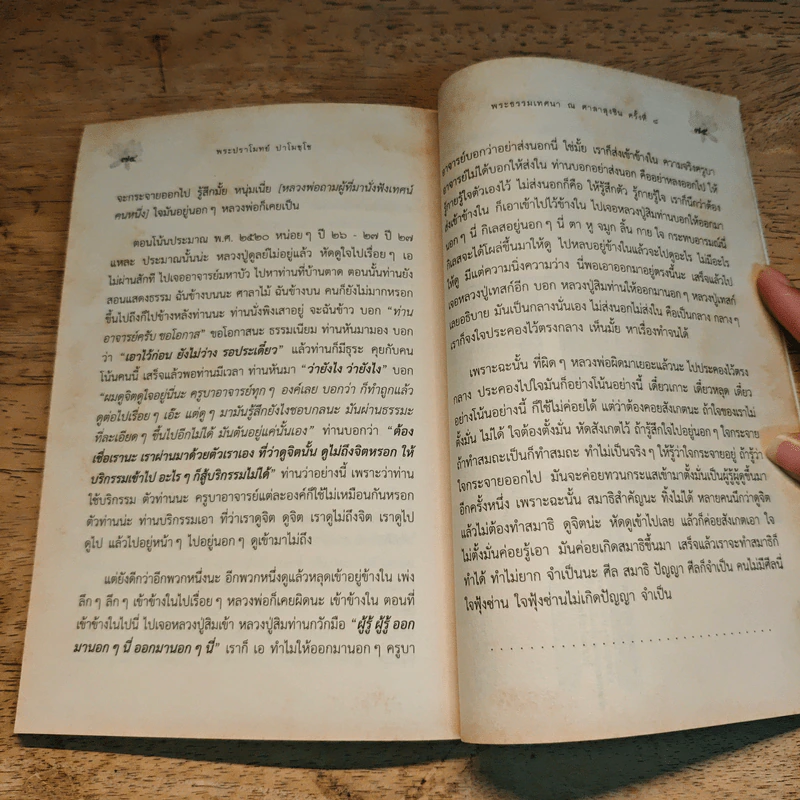 ๗๔
พระปราโมทย์ ปาโมชฺโช
จะกระจายออกไป รู้สึกมั้ย หนุ่มเนี่ย (หลวงพ่อถามผู้ที่มานั่งฟังเทศน์
คนหนึ่ง) ใจมันอยู่นอกๆ หลวงพ่อก็เคยเป็น
ตอนโน้นประมาณ พ.ศ. ๒๕๒๐ หน่อยๆ ปี ๒๖ - ๒๗ ปี ๒๗
แหละ ประมาณนั้นน่ะ หลวงปู่ดูลย์ไม่อยู่แล้ว หัดดูใจไปเรื่อยๆ เอ
ไม่ผ่านสักที ไปเจออาจารย์มหาบัว ไปหาท่านที่บ้านตาด ตอนนั้นท่านยัง
สอนแสดงธรรม ฉันข้างบนนะ ศาลาไม้ ฉันข้างบน คนก็ยังไม่มากหรอก
ขึ้นไปถึงก็ไปข้างหลังท่านน่ะ ท่านนั่งพิงเสาอยู่ จะฉันข้าว บอก “ท่าน
อาจารย์ครับ ขอโอกาส” ขอโอกาสนะ ธรรมเนียม ท่านหันมามอง บอก
ว่า “เอาไว้ก่อน ยังไม่ว่าง รอประเดี๋ยว” แล้วท่านก็มีธุระ คุยกับคน
โน้นคนนี้ เสร็จแล้วพอท่านมีเวลา ท่านหันมา “ว่ายังไง ว่ายังไง” บอก
“ผมดูจิตดูใจอยู่นี่นะ ครูบาอาจารย์ทุกๆ องค์เลย บอกว่า ก็ทำถูกแล้ว
ดูต่อไปเรื่อยๆ เอ๊ะ แต่ดูๆ มามันรู้สึกยังไงชอบกลนะ มันผ่านธรรมะ
ที่ละเอียดๆ ขึ้นไปอีกไม่ได้ มันตันอยู่แค่นั้นเอง” ท่านบอกว่า “ต้อง
เชื่อเรานะ เราผ่านมาด้วยตัวเราเอง ที่ว่าดูจิตนั้น ดูไม่ถึงจิตหรอก ให้
บริกรรมเข้าไป อะไรๆ ก็สู้บริกรรมไม่ได้” ท่านว่าอย่างนี้ เพราะว่าท่าน
ใช้บริกรรม ตัวท่านน่ะ ครูบาอาจารย์แต่ละองค์ก็ใช้ไม่เหมือนกันหรอก
ตัวท่านน่ะ ท่านบริกรรมเอา ที่ว่าเราดูจิต ดูจิต เราดูไม่ถึงจิต เราดูไป
ดูไป แล้วไปอยู่หน้าๆ ไปอยู่นอกๆ ดูเข้ามาไม่ถึง
แต่ยังดีกว่าอีกพวกหนึ่งนะ อีกพวกหนึ่งดูแล้วหลุดเข้าอยู่ข้างใน เพ่ง
ลึกๆ ลึกๆ เข้าข้างในไปเรื่อยๆ หลวงพ่อก็เคยผิดนะ เข้าข้างใน ตอนที่
เข้าข้างในไปนี่ ไปเจอหลวงปู่สิมเข้า หลวงปู่สิมท่านกวักมือ “ผู้รู้ ผู้รู้ ออก
มานอกๆ นี่ ออกมานอกๆ นี่” เราก็ เอ ทำไมให้ออกมานอกๆ ครูบา
พระธรรมเทศนา ณ ศาลาลุงชิน ครั้งที่ ๘
๗๕
อาจารย์บอกว่าอย่าส่งนอกนี่ ใช่มั้ย เราก็ส่งเข้าข้างใน ความจริงครูบา
อาจารย์ไม่ได้บอกให้ส่งใน ท่านบอกอย่าส่งนอก คืออย่าหลงออกไป ให้
รู้กายรู้ใจตัวเองไว้ ไม่ส่งนอกก็คือ ให้รู้สึกตัว รู้กายรู้ใจ เราก็นึกว่าต้อง
ส่งเข้าข้างใน ก็เอาเข้าไปไว้ข้างใน ไปเจอหลวงปู่สิมท่านบอกให้ออกมา
นอกๆ นี่ กิเลสอยู่นอกๆ นี่ ตา หู จมูก ลิ้น กาย ใจ กระทบอารมณ์นี่
กิเลสจะได้โผล่ขึ้นมาให้ดู ไปหลบอยู่ข้างในแล้วจะไปดูอะไร ไม่มีอะไร
ให้ดู มีแต่ความนิ่งความว่าง นี่พอเอาออกมาอยู่ตรงนี้นะ เสร็จแล้วไป
เจอหลวงปู่เทสก์อีก บอก หลวงปู่สิมท่านให้ออกมานอกๆ หลวงปู่เทสก์
เลยอธิบาย มันเป็นกลางนั่นเอง ไม่ส่งนอกไม่ส่งใน คือเป็นกลาง กลางๆ
เราก็จงใจประคองไว้ตรงกลาง เห็นมั้ย หาเรื่องทำจนได้
เพราะฉะนั้น ที่ผิดๆ หลวงพ่อผิดมาเยอะแล้วนะ ไปประคองไว้ตรง
กลาง ประคองไปใจมันก็อย่างโน้นอย่างนี้ เดี๋ยวเกาะ เดี๋ยวหลุด เดี๋ยว
อย่างโน้นอย่างนี้ ก็ใช้ไม่ค่อยได้ แต่ว่าต้องคอยสังเกตนะ ถ้าใจของเราไม่
ตั้งมั่น ไม่ได้ ใจต้องตั้งมั่น หัดสังเกตไว้ ถ้ารู้สึกใจไปอยู่นอกๆ ใจกระจาย
ถ้าทำสมถะเป็นก็ทำสมถะ ทำไม่เป็นจริงๆ ให้รู้ว่าใจกระจายอยู่ ถ้ารู้ว่า
ใจกระจายออกไป มันจะค่อยทวนกระแสเข้ามาตั้งมั่นเป็นผู้รู้ผู้ดูขึ้นมา
อีกครั้งหนึ่ง เพราะฉะนั้น สมาธิสำคัญนะ ทิ้งไม่ได้ หลายคนนึกว่าดูจิต
แล้วไม่ต้องทำสมาธิ ดูจิตน่ะ หัดดูเข้าไปเลย แล้วก็ค่อยสังเกตเอา ใจ
ไม่ตั้งมั่นค่อยรู้เอา มันค่อยเกิดสมาธิขึ้นมา เสร็จแล้วเราจะทำสมาธิก็
ทำได้ ทำไม่ยาก จำเป็นนะ ศีล สมาธิ ปัญญา ศีลก็จำเป็น คนไม่มีศีลนี่
ใจฟุ้งซ่าน ใจฟุ้งซ่านไม่เกิดปัญญา จำเป็น
. . . . . . . . . . . . . . . . . . . . . . . . . . . . . . .